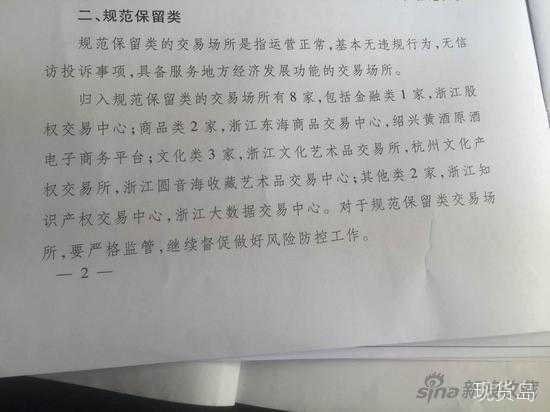 二、规范保留类
规范保留类的交易场所是指运营正常,基本无违规行为,无信
访投诉事项,具备服务地方经济发展功能的交易场所。
归入规范保留类的交易场所有8家,包括金融类1家,浙江股
权交易中心;商品类2家,浙江东海商品交易中心,绍兴黄酒原酒
电子商务平台;文化类3家,浙江文化艺术品交易所,杭州文化产
权交易所,浙江圆音海收藏艺术品交易中心;其他类2家,浙江知
识产权交易中心,浙江大数据交易中心。对于规范保留类交易场
所,要严格监管,继续督促做好风险防控工作。
— 2 —
sina
现货岛